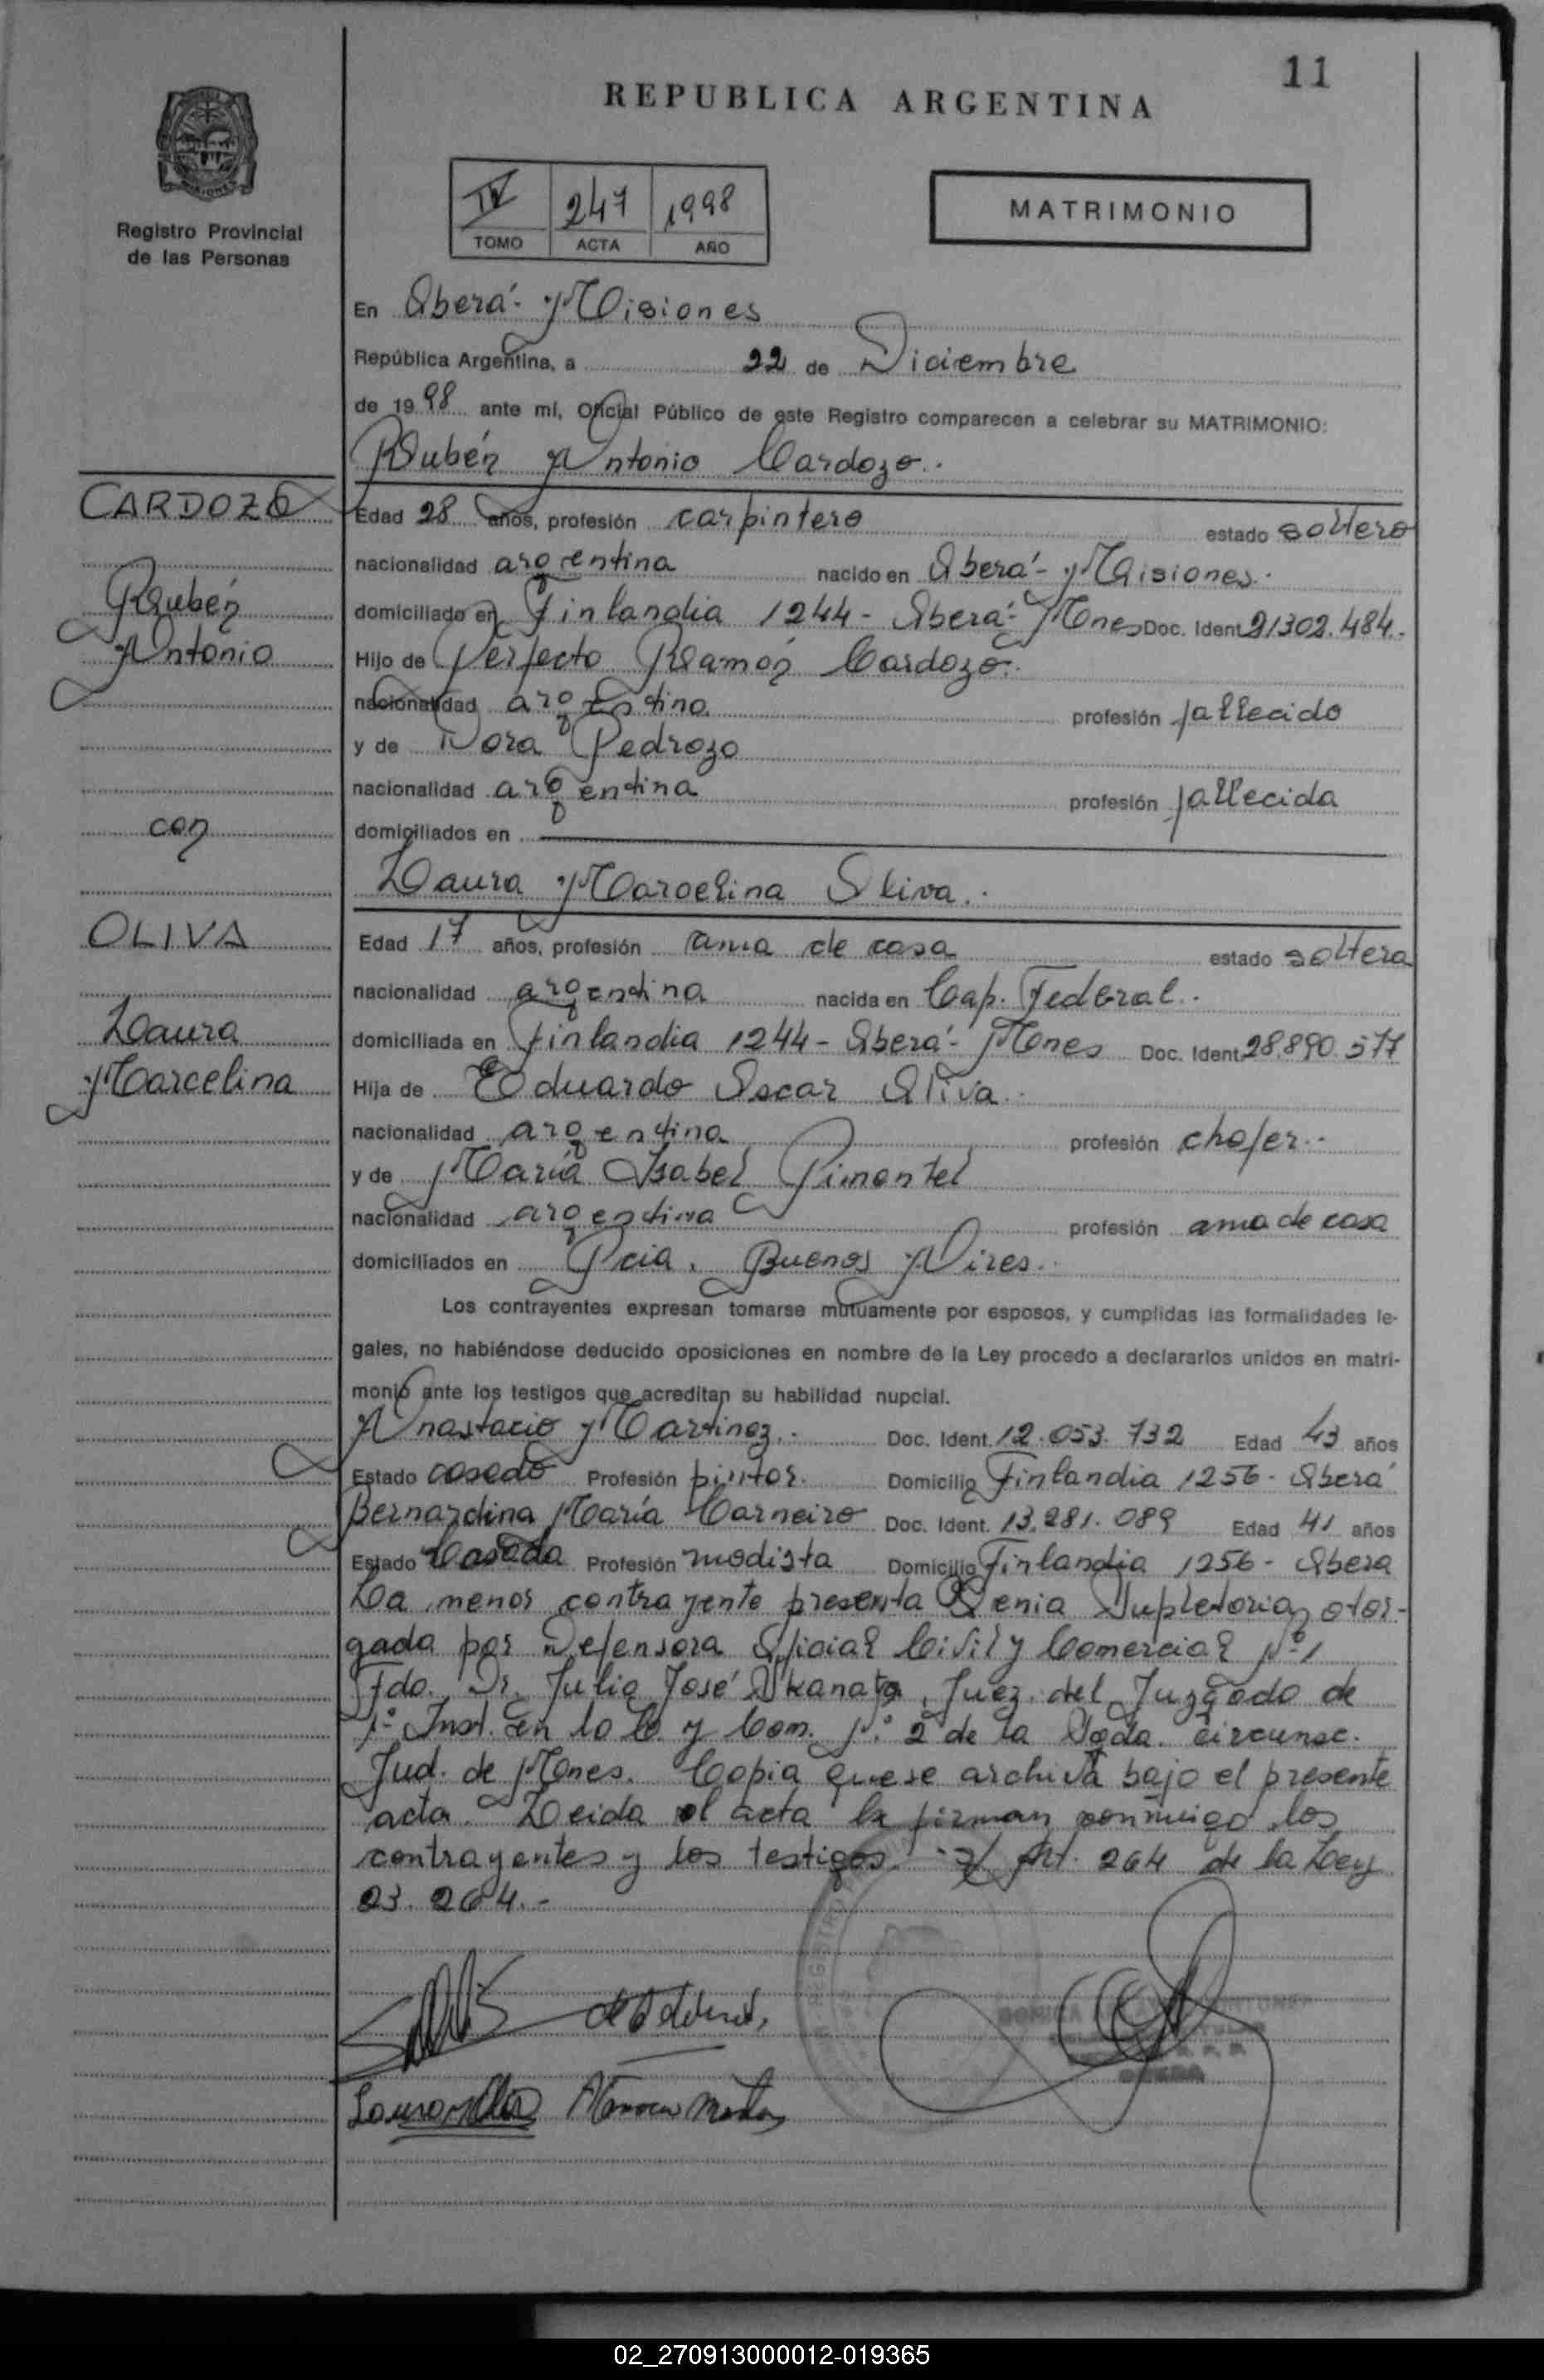 11
REPUBLICA ARGENTINA
Registro Provincial
de las Personas
IV 247 1998
TOMO ACTA AÑO
MATRIMONIO
En Oberá - Misiones
República Argentina, a 22 de Diciembre
de 1998 ante mí, Oficial Público de este Registro comparecen a celebrar su MATRIMONIO:
Rubén Antonio Cardozo.-
CARDOZO
Rubén
Antonio
con
OLIVA
Laura
Marcelina
Edad 28 años, profesión carpintero estado soltero
nacionalidad argentina nacido en Oberá - Misiones.
domiciliado en Finlandia 1244 - Oberá - Mnes Doc. Ident 21302.484.-
Hijo de Perfecto Ramón Cardozo.-
nacionalidad argentina profesión fallecido
y de Dora Pedrozo
nacionalidad argentina profesión fallecida
domiciliados en
Laura Marcelina Oliva.-
Edad 17 años, profesión ama de casa estado soltera
nacionalidad argentina nacida en Cap. Federal.-
domiciliada en Finlandia 1244 - Oberá - Mnes Doc. Ident 28.890.577
Hija de Eduardo Oscar Oliva.-
nacionalidad argentina profesión chofer.-
y de María Isabel Pimentel
nacionalidad argentina profesión ama de casa
domiciliados en Pcia. Buenos Aires.-
Los contrayentes expresan tomarse mutuamente por esposos, y cumplidas las formalidades le-
gales, no habiéndose deducido oposiciones en nombre de la Ley procedo a declararlos unidos en matri-
monio ante los testigos que acreditan su habilidad nupcial.
Anastacio Martinez.- Doc. Ident. 12.053.732 Edad 43 años
Estado casado Profesión pintor. Domicilio Finlandia 1256 - Oberá
Bernardina María Carneiro Doc. Ident. 13.281.089 Edad 41 años
Estado Casada Profesión modista Domicilio Finlandia 1256 - Obera
La menor contrayente presenta Venia Supletoria, otor-
gada por Defensora Oficial Civil y Comercial Nº 1
Fdo. Dr. Julio José Juez del Juzgado de
1º Inst. en lo C. y Com. Nº 2 de la Sgda. circunsc.
Jud. de Mnes. Copia que se archiva bajo el presente
acta. Leida el acta la firman conmigo los
contrayentes y los testigos.- Art. 264 de la Ley
23.264.-
02_270913000012-019365